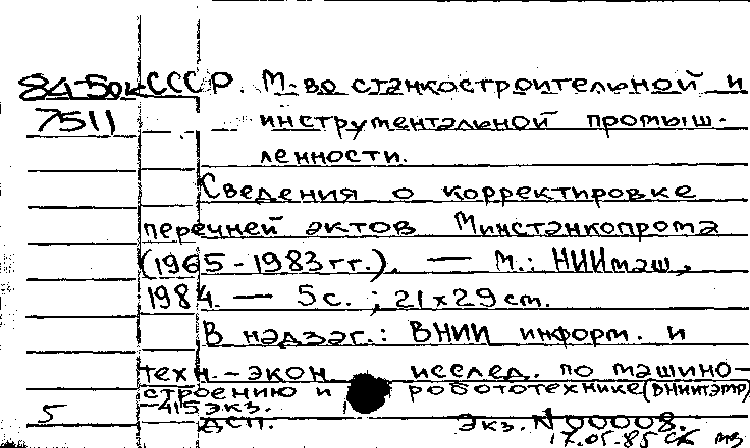 84-5ок СССР. М-во станкостроительной и
7511 инструментальной промыш-
ленности.
Сведения о корректировке
перечней актов Минстанкопрома
(1965-1983 гг.). — М.: НИИмаш,
1984. — 5 с. ; 21 х 29 см.
В надзаг.: ВНИИ информ. и
техн.-экон исслед. по машино-
строению и робототехнике (ВНИИТЭМР)
5 -415 экз.
ДСП. Экз. N 00008.
17.05.85